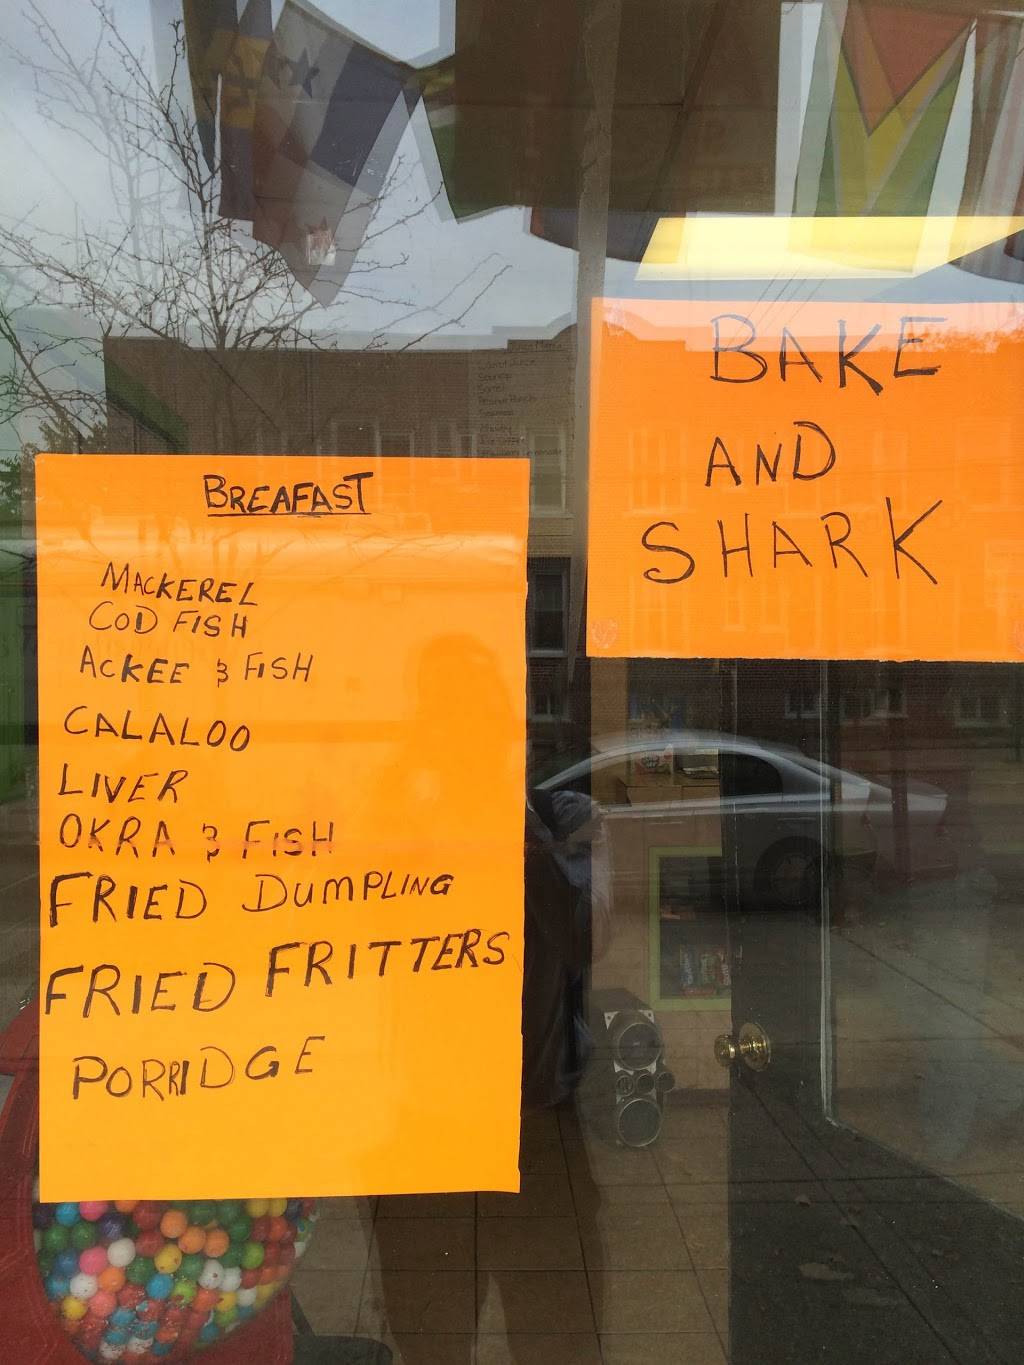 BREAFAST
MACKEREL
COD FISH
ACKEE & FISH
CALALOO
LIVER
OKRA & FISH
FRIED DUMPLING
FRIED FRITTERS
PORRIDGE
BAKE
AND
SHARK